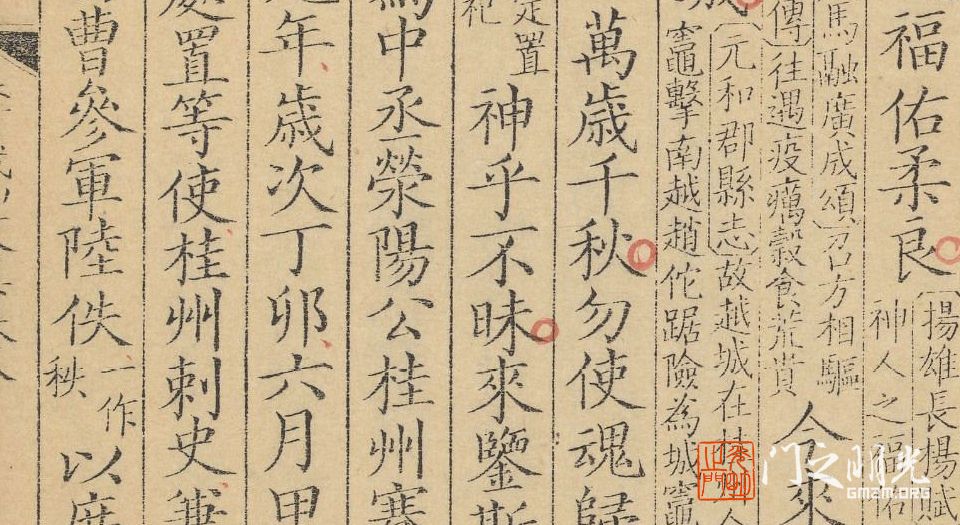 福佑柔良
揚雄長楊賦
神人之福佑
馬融廣成頌召方相驅
傳往遇疫癘穀食荒貴
令來
元和郡縣志故越城在桂州
竈擊南越趙佗踞險為城竈
萬歲千秋勿使魂歸
定置
祀
神乎不昧來鑒斯
中丞滎陽公桂州塞
年歲次丁卯六月甲
處置等使桂州刺史兼
曹參軍陸佚
一作
秩
以庶
门之明光
GMZM.ORG